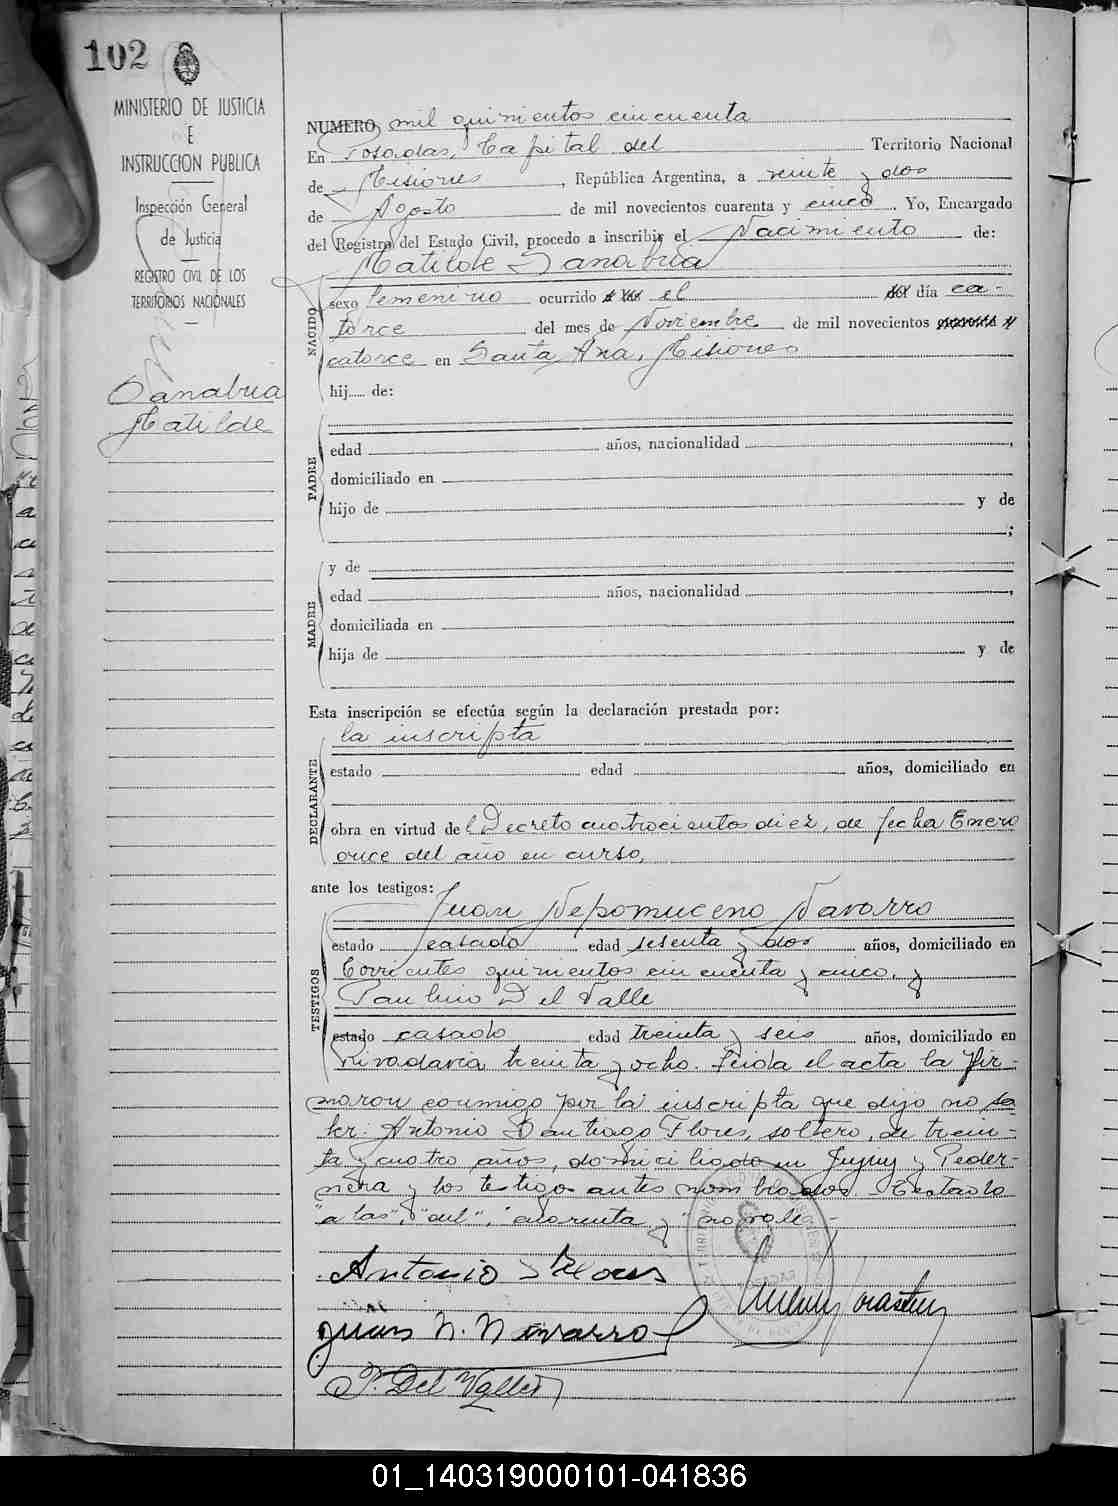 102
MINISTERIO DE JUSTICIA
E
INSTRUCCION PUBLICA
Inspección General
de Justicia
REGISTRO CIVIL DE LOS
TERRITORIOS NACIONALES
Sanabria
Matilde
NUMERO mil quinientos cincuenta
En Posadas, Capital del Territorio Nacional
de Misiones, República Argentina, a veinte y dos
de Agosto de mil novecientos cuarenta y cinco. Yo, Encargado
del Registro del Estado Civil, procedo a inscribir el Nacimiento de:
Matilde Sanabria
NACIDO
sexo femenino ocurrido a las el del día ca-
torce del mes de Noviembre de mil novecientos cuarenta y
catorce en Santa Ana, Misiones
hij..... de:
PADRE
edad años, nacionalidad ,
domiciliado en
hijo de y de
;
MADRE
y de
edad años, nacionalidad ,
domiciliada en
hija de y de
Esta inscripción se efectúa según la declaración prestada por:
la inscripta
DECLARANTE
estado edad años, domiciliado en
obra en virtud del Decreto cuatrocientos diez, de fecha Enero
once del año en curso,
ante los testigos:
Juan Nepomuceno Navarro
TESTIGOS
estado casado edad sesenta y dos años, domiciliado en
Corrientes quinientos cincuenta y cinco, y
Paulino Del Valle
estado casado edad treinta y seis años, domiciliado en
Rivadavia treinta y ocho. Leida el acta la fir-
maron conmigo por la inscripta que dijo no sa
ber: Antonio Santiago Flores, soltero, de trein-
ta y cuatro años, domiciliado en Jujuy y Peder-
nera y los testigos antes nombrados. Testado
"a las", "del", "cuarenta y" no vale.-
Antonio S Flores
Juan N. Navarro
P. Del Valle
01_140319000101-041836